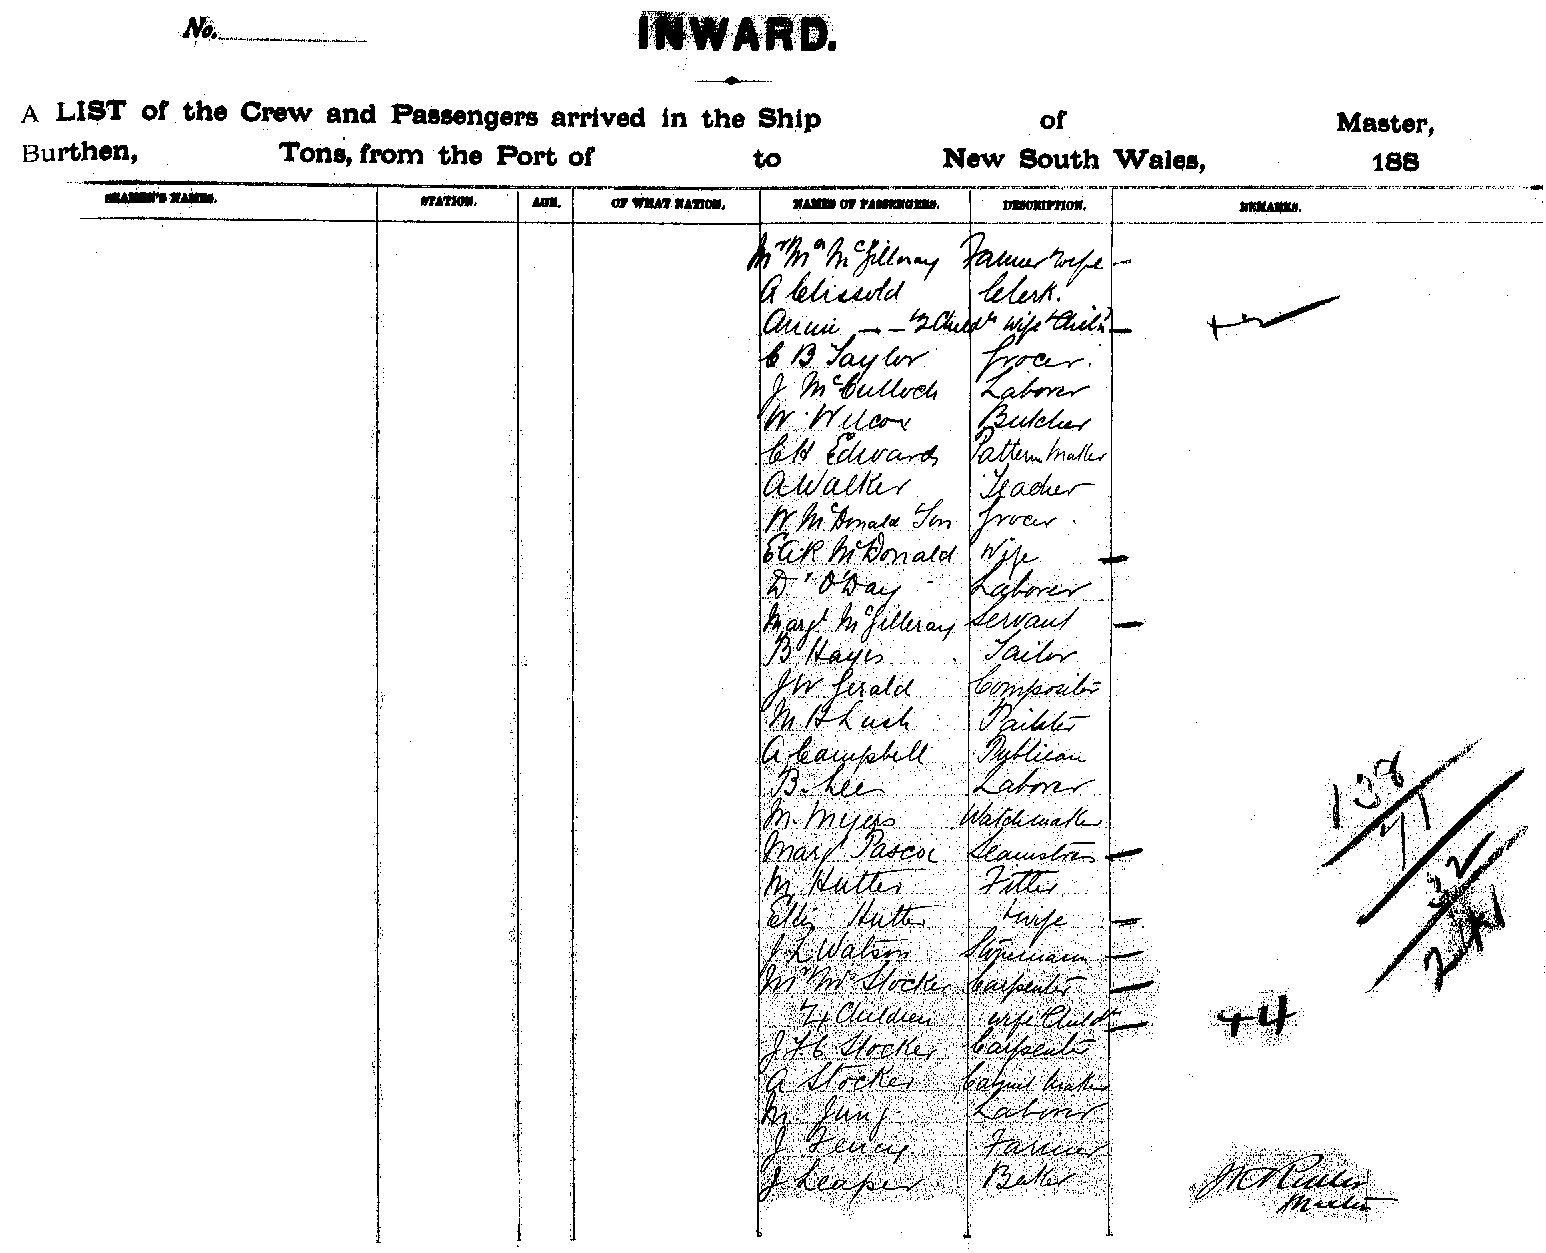 No.
INWARD.
A LIST of the Crew and Passengers arrived in the Ship of Master,
Burthen, Tons, from the Port of to New South Wales, 188
SEAMEN'S NAMES. STATION. AGE. OF WHAT NATION. NAMES OF PASSENGERS. DESCRIPTION. REMARKS.
Mr Mrs McGilleray Farmer wife
A Clissold Clerk.
Annie — — 2 Child wife Child +2
C B Taylor Grocer.
J McCulloch Laborer
W. Wilcox Butcher
C H Edwards Pattern Maker
A Walker Teacher
W McDonald Son Grocer.
McDonald Wife
D O'Day Laborer
Margt McGilleray Servant
B Hayes Tailor
J W Gerald Compositor
M B Lush Painter
A Campbell Publican
B. Lee Laborer
M. Myers Watchmaker
Margt Pascoe Seamstress
M Hutter Fitter
Hutter wife
J L Watson
Mr Mrs Stocker Carpenter
4 Children wife Child +4
J F C Stocker Carpenter
A Stocker Cabinet Maker
M. Jung Laborer
J Farmer
J Leaper Baker
138
71
32
241
Master